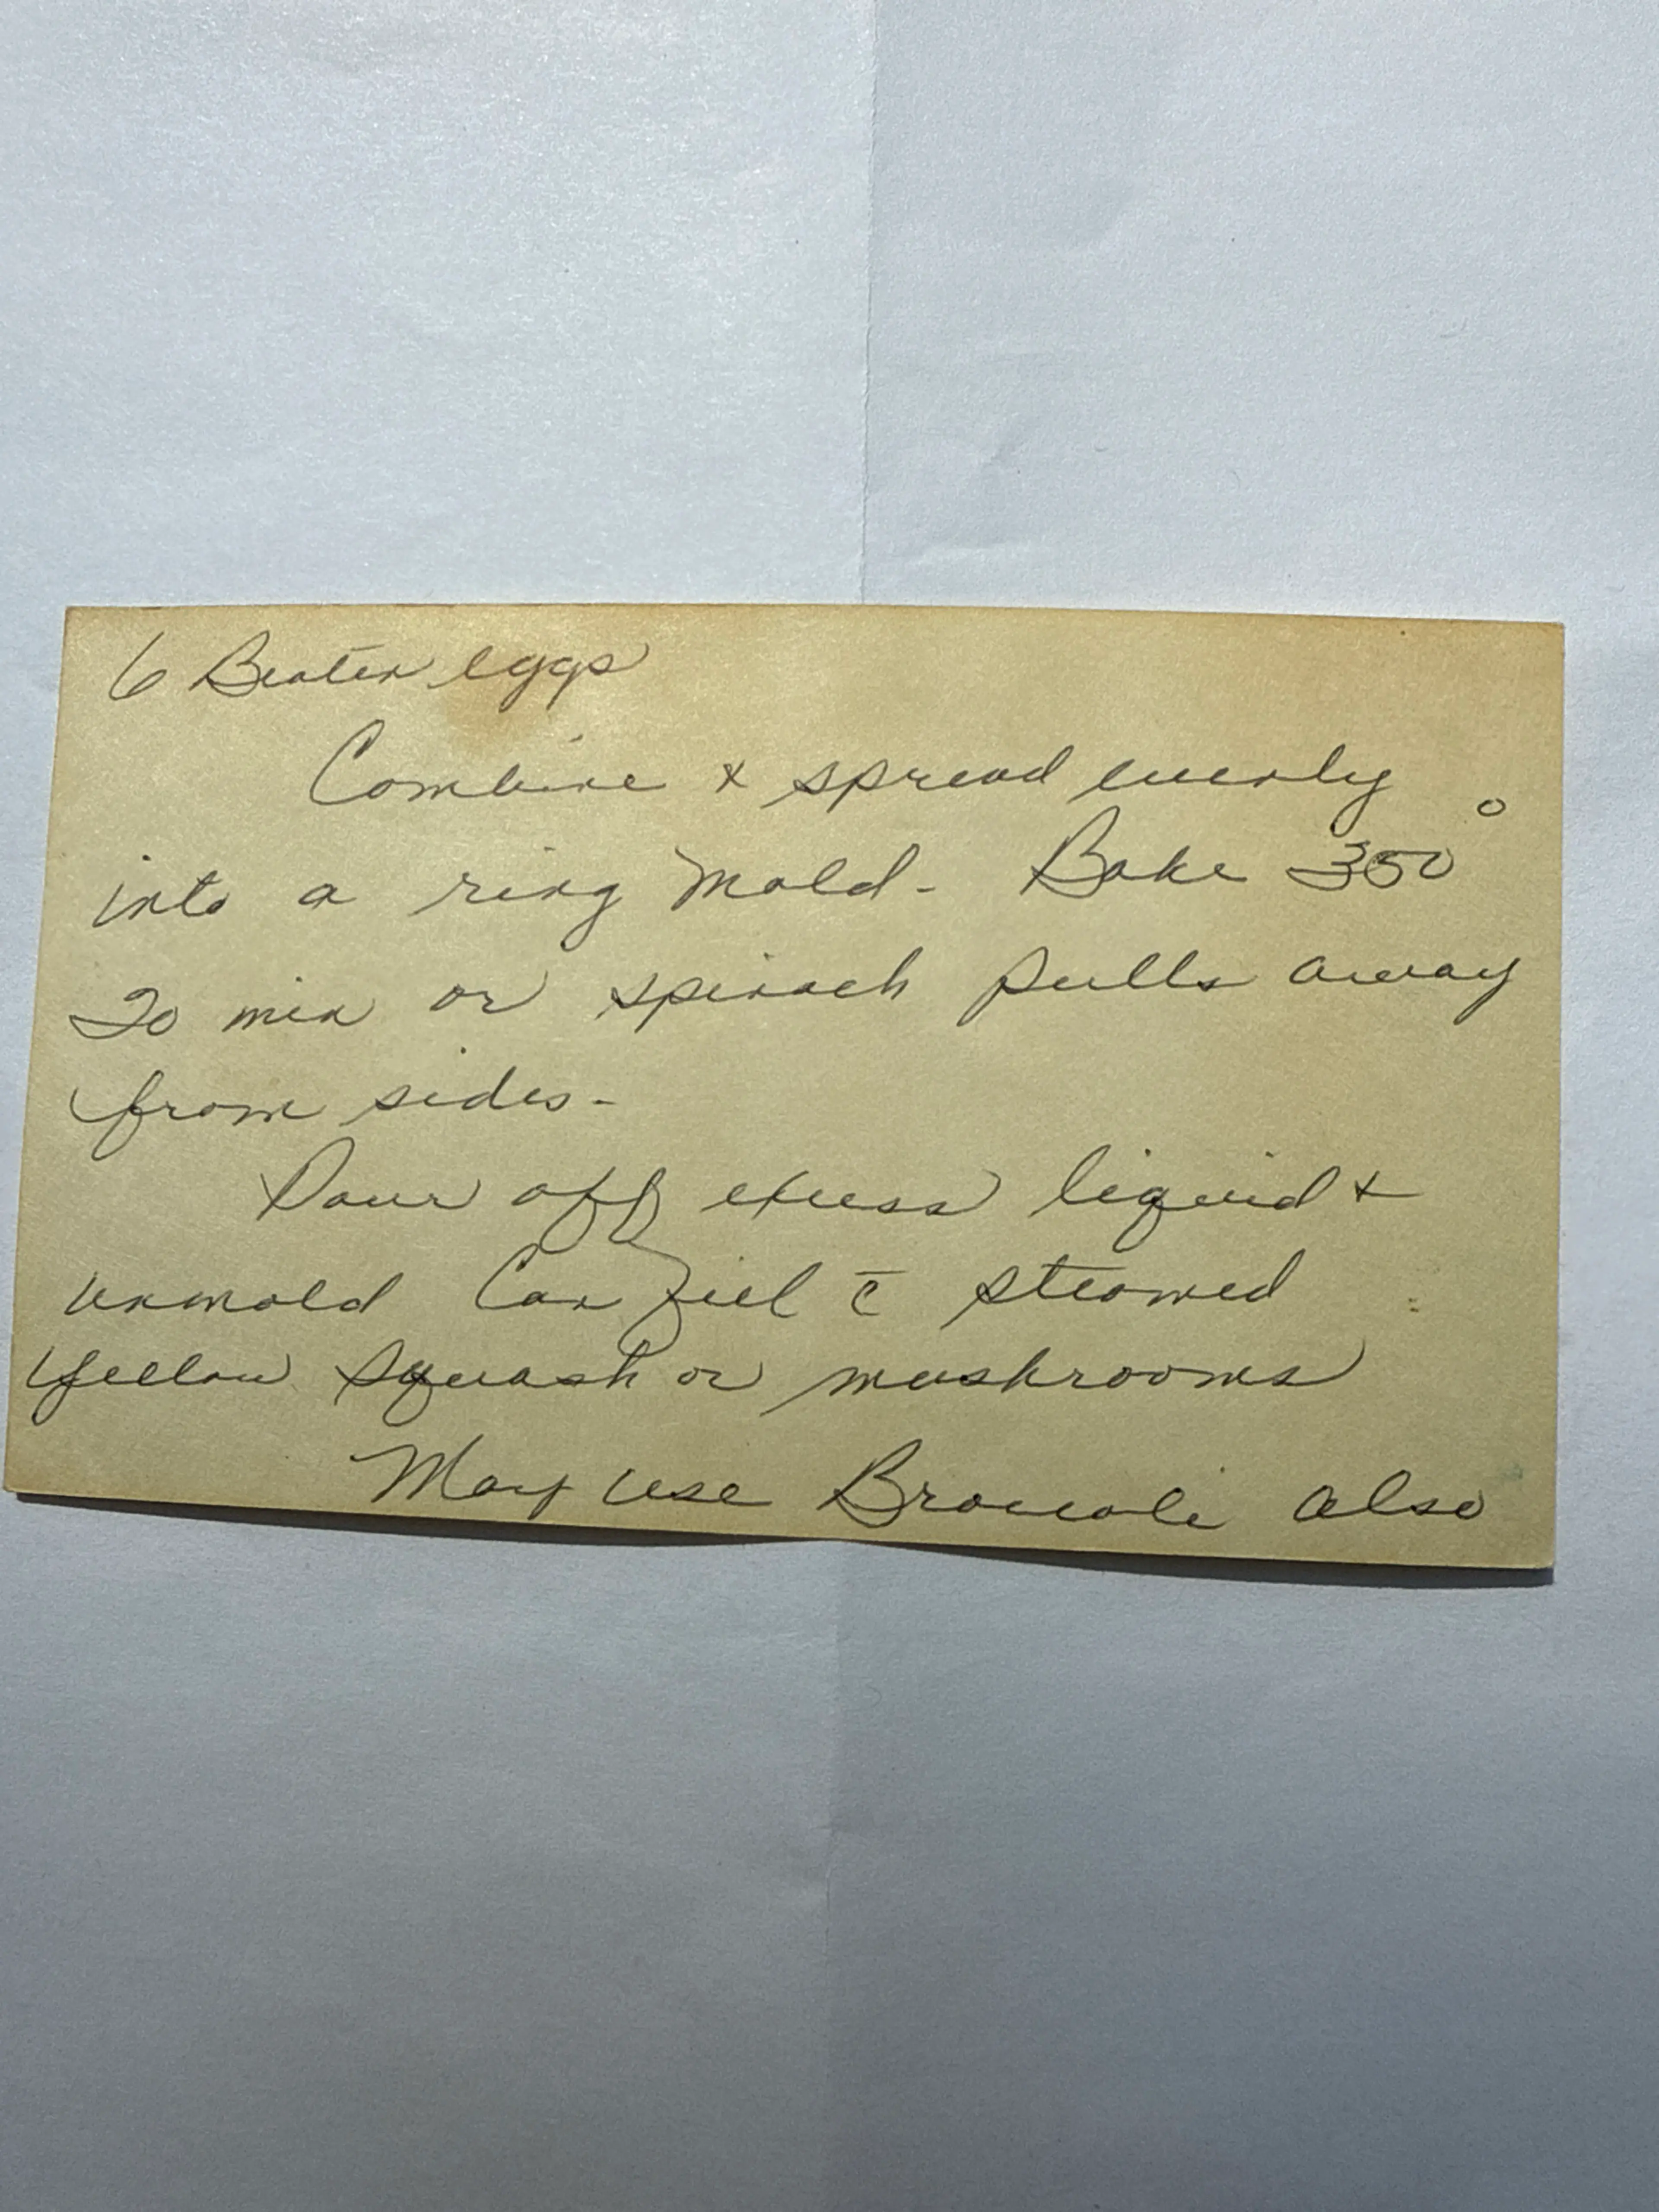 6 Beaten eggs
Combine & spread evenly
into a ring mold - Bake 350°
20 min or spinach pulls away
from sides -
Pour off excess liquid &
unmold Can fill c̄ steamed
yellow squash or mushrooms
May use Broccoli also